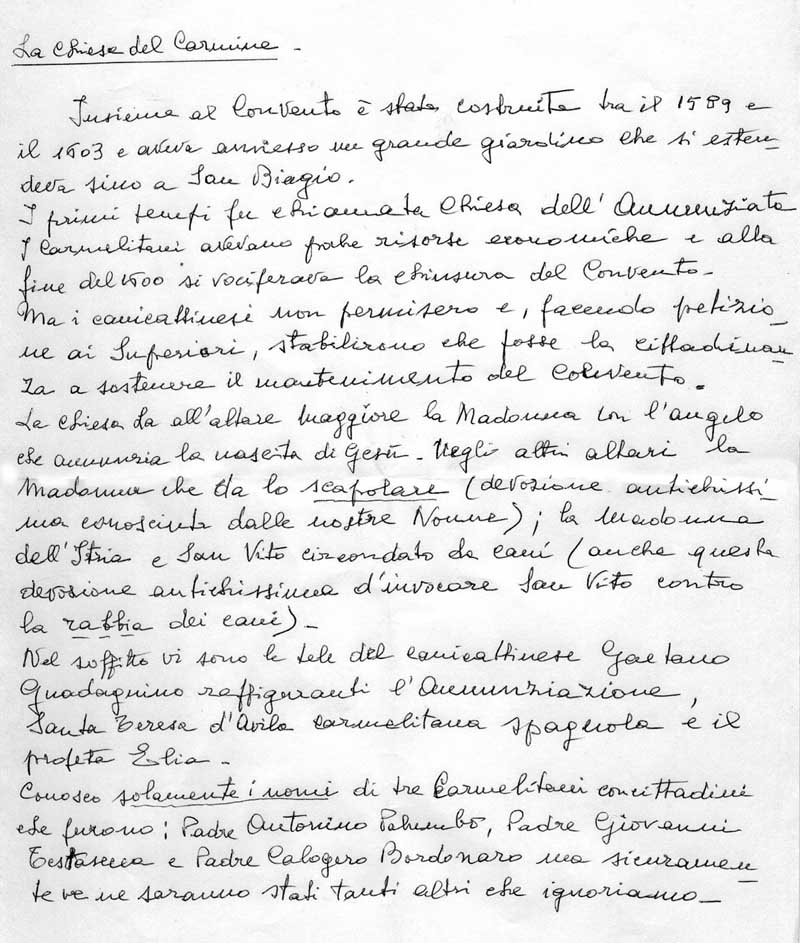 La Chiesa del Carmine -
Insieme al Convento è stata costruita tra il 1589 e
il 1603 e aveva annesso un grande giardino che si esten-
deva sino a San Biagio.
I primi tempi fu chiamata Chiesa dell'Annunziata
I Carmelitani avevano poche risorse economiche e alla
fine del 1600 si vociferava la chiusura del Convento-
Ma i canicattinesi non permisero e, facendo petizio-
ne ai Superiori, stabilirono che fosse la cittadinan-
za a sostenere il mantenimento del Convento.
La Chiesa ha all'altare Maggiore la Madonna con l'angelo
che annunzia la nascita di Gesù - Negli altri altari la
Madonna che dà lo scapolare (devozione antichissi-
ma conosciuta dalle nostre Nonne); la Madonna
dell'Itria e San Vito circondato da cani (anche questa
devozione antichissima d'invocare San Vito contro
la rabbia dei cani) -
Nel soffitto vi sono le tele del canicattinese Gaetano
Guadagnino raffiguranti l'Annunziazione,
Santa Teresa d'Avila Carmelitana spagnola e il
profeta Elia -
Conosco solamente i nomi di tre Carmelitani concittadini
che furono: Padre Antonino Palumbo, Padre Giovanni
Testasecca e Padre Calogero Bordonaro ma sicuramen-
te ve ne saranno stati tanti altri che ignoriamo -